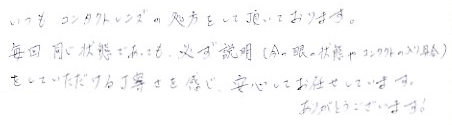 いつも コンタクトレンズの処方をして頂いております。
毎回 同じ状態であっても、必ず説明(今の眼の状態やコンタクトの入り具合)
をしていただける丁寧さを感じ、安心してお任せしています。
ありがとうございます!